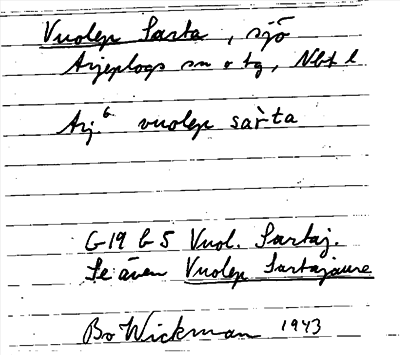 Vuolep Sarta, sjö
Arjeplogs sn o tg, Nbt l
Arj.⁶ vuolep sàrta
G19 b5 Vuol. Sartaj.
Se även Vuolep Sartajaure
Bo Wickman 1943